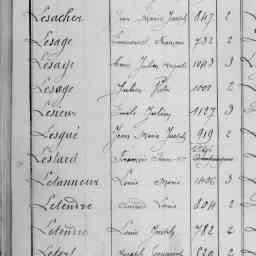 Lesacher Jean Marie Joseph 847 2
Lesage Emmanuel François 732 2
Lesage Marie Julien Auguste 1043 3
Lesage Julien Pierre 1001 2
Lesueur Emile Julien 1127 3
Lesqué Jean Marie Joseph 919 2
Lestard François
Letanneur Louis Marie 1406 3
Letendre Louis 804 2
Letendre Louis Joseph 782 2
Joseph 820 2